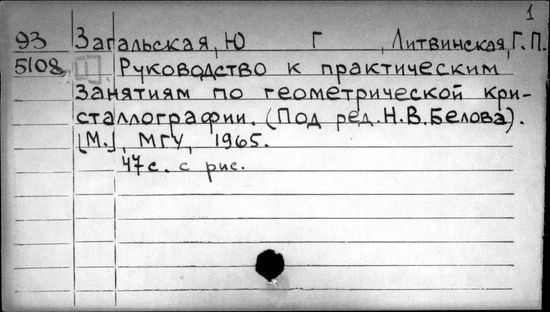 1
93 Загальская, Ю Г , Литвинская, Г. П.
5108 Руководство к практическим
занятиям по геометрической кри-
сталлографии. (Под ред. Н. В. Белова).
[М.], МГУ, 1965.
47 с. с рис.